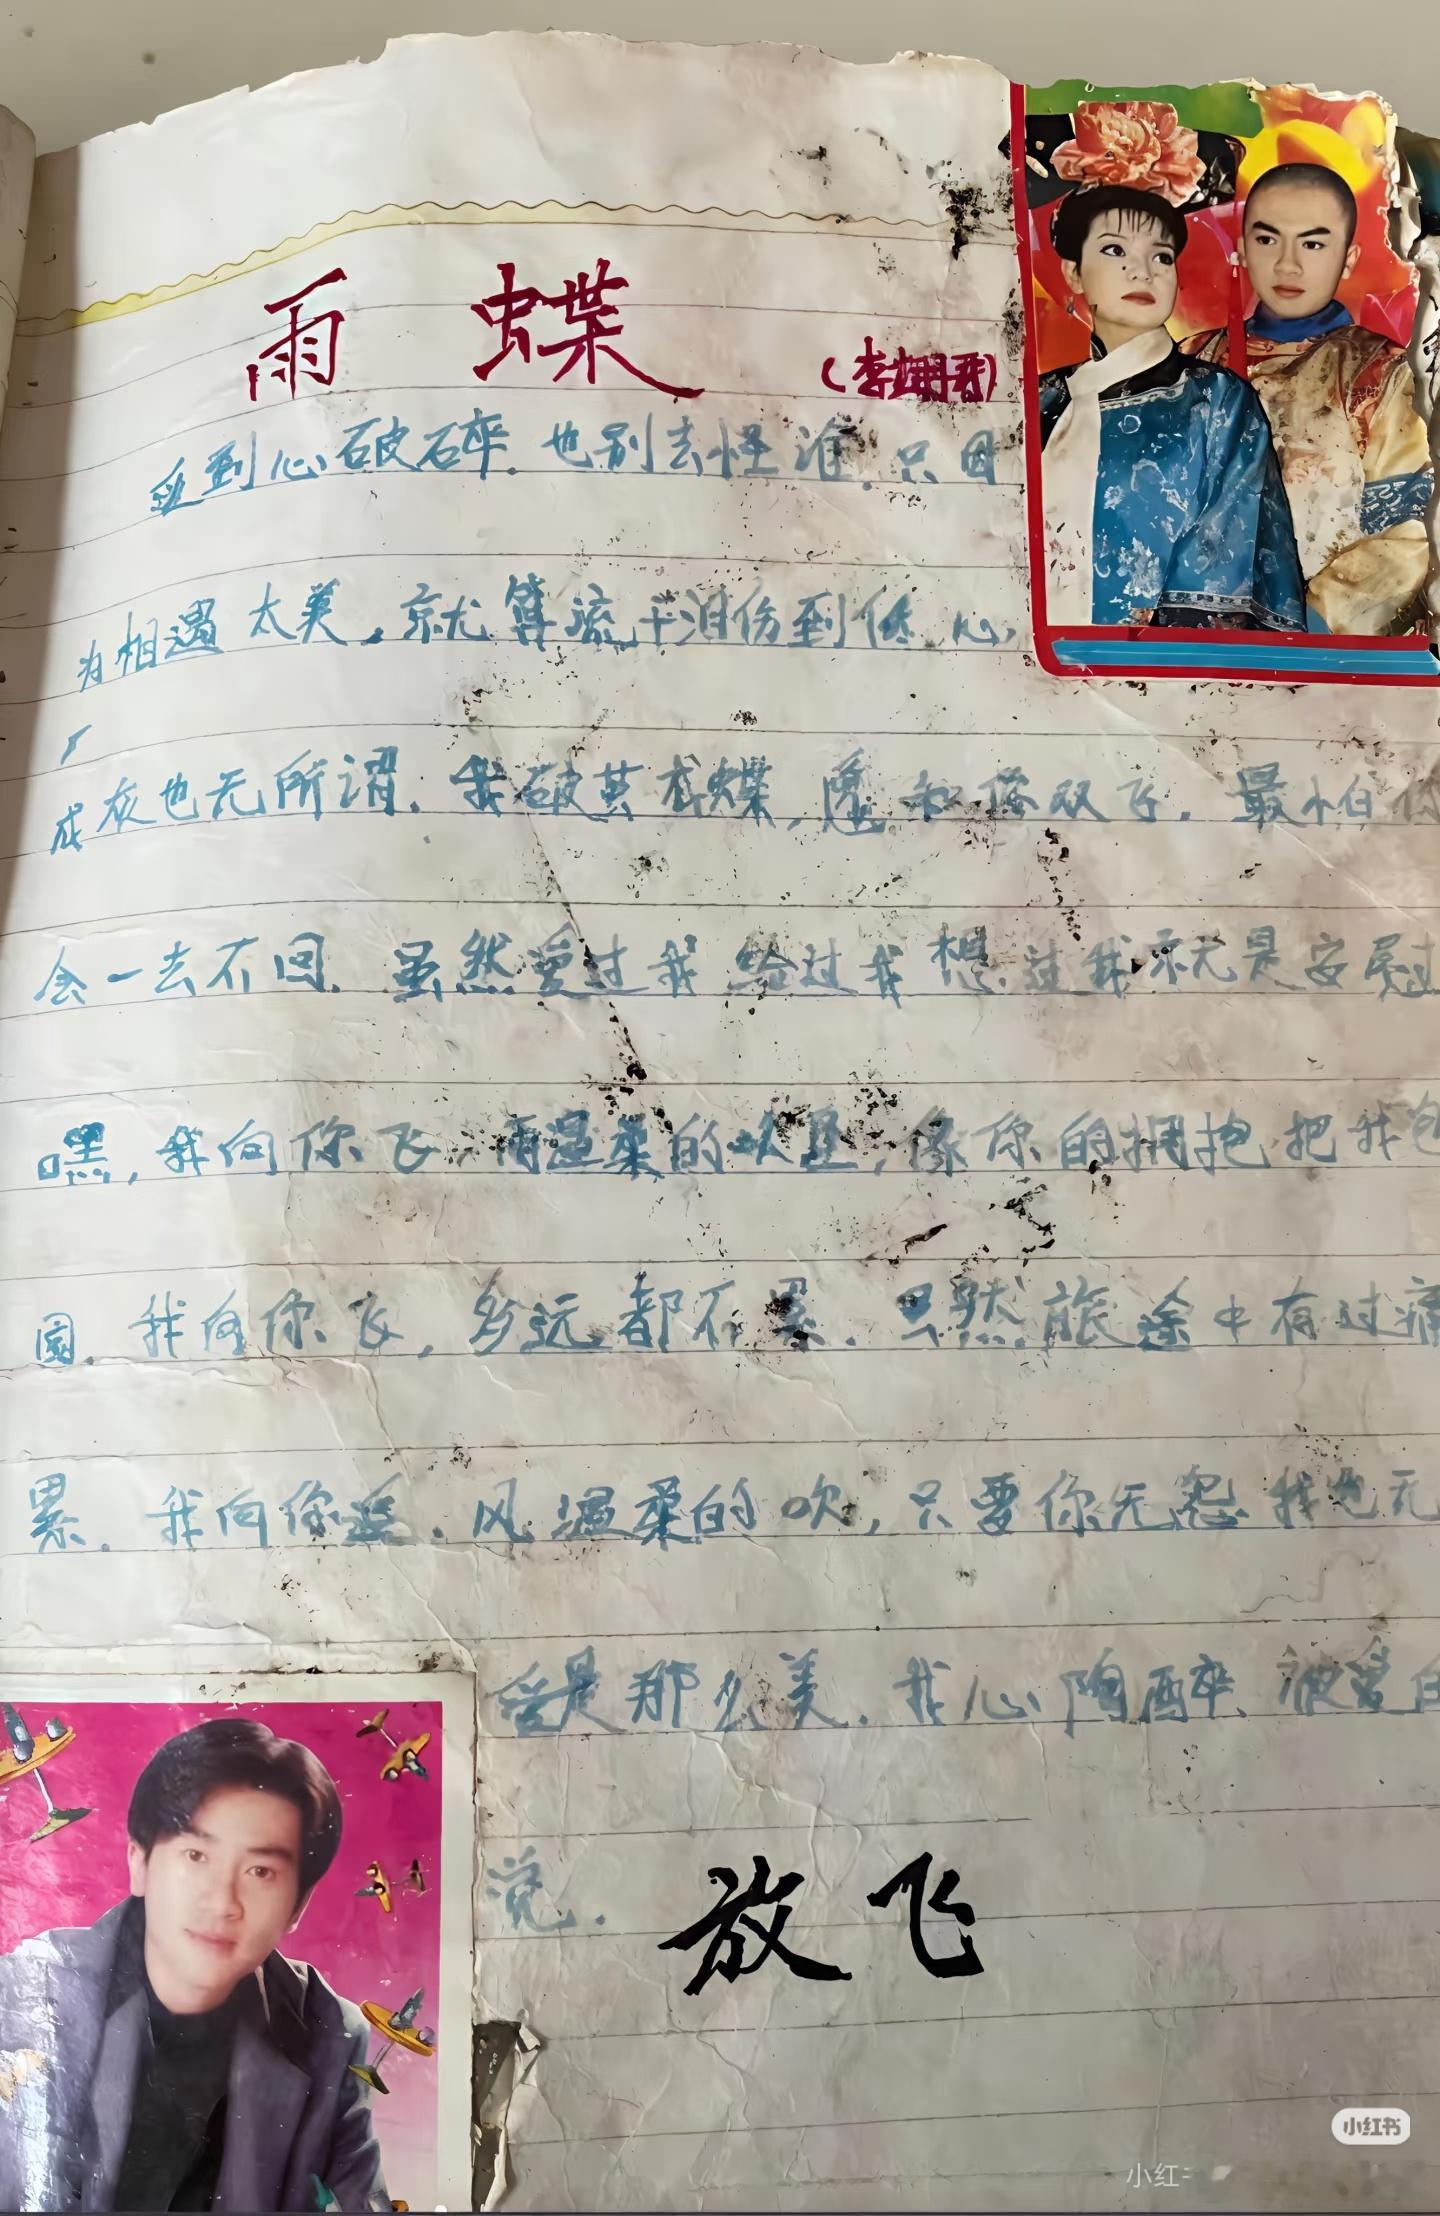 雨 蝶
(李翊君)
爱到心破碎.也别去怪谁.只因
为相遇太美,就算流干泪伤到底心,
成灰也无所谓.我破茧成蝶,愿和你双飞.最怕你
会一去不回.虽然爱过我给过我想过我就是安慰
嘿,我向你飞,雨温柔的坠,像你的拥抱把我包
圍.我向你飞,多远都不累.虽然旅途中有过痛
累.我向你追.风温柔的吹,只要你无怨我也无
爱是那么美.我心陶醉.被爱的
觉.
放飞
小红书
小红